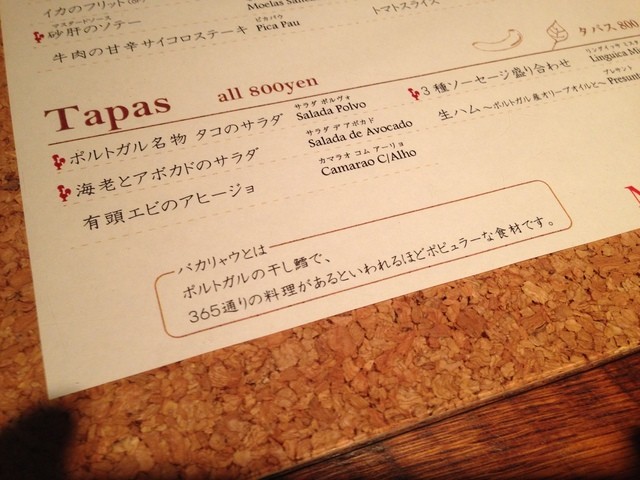 イカのフリット
Moelas
トマトスライス
マスタードソース
砂肝のソテー
牛肉の甘辛サイコロステーキ
ピカパウ
Pica Pau
タパス 800
Tapas all 800yen
ポルトガル名物 タコのサラダ
サラダ ポルヴォ
Salada Polvo
海老とアボカドのサラダ
サラダ デ アボカド
Salada de Avocado
有頭エビのアヒージョ
カマラオ コム アーリョ
Camarao C/Alho
3種ソーセージ盛り合わせ
リングイッサ ミスタ
Linguica
生ハム~ポルトガル産オリーブオイルと~
プレサント
Presun
バカリャウとは
ポルトガルの干し鱈で、
365通りの料理があるといわれるほどポピュラーな食材です。